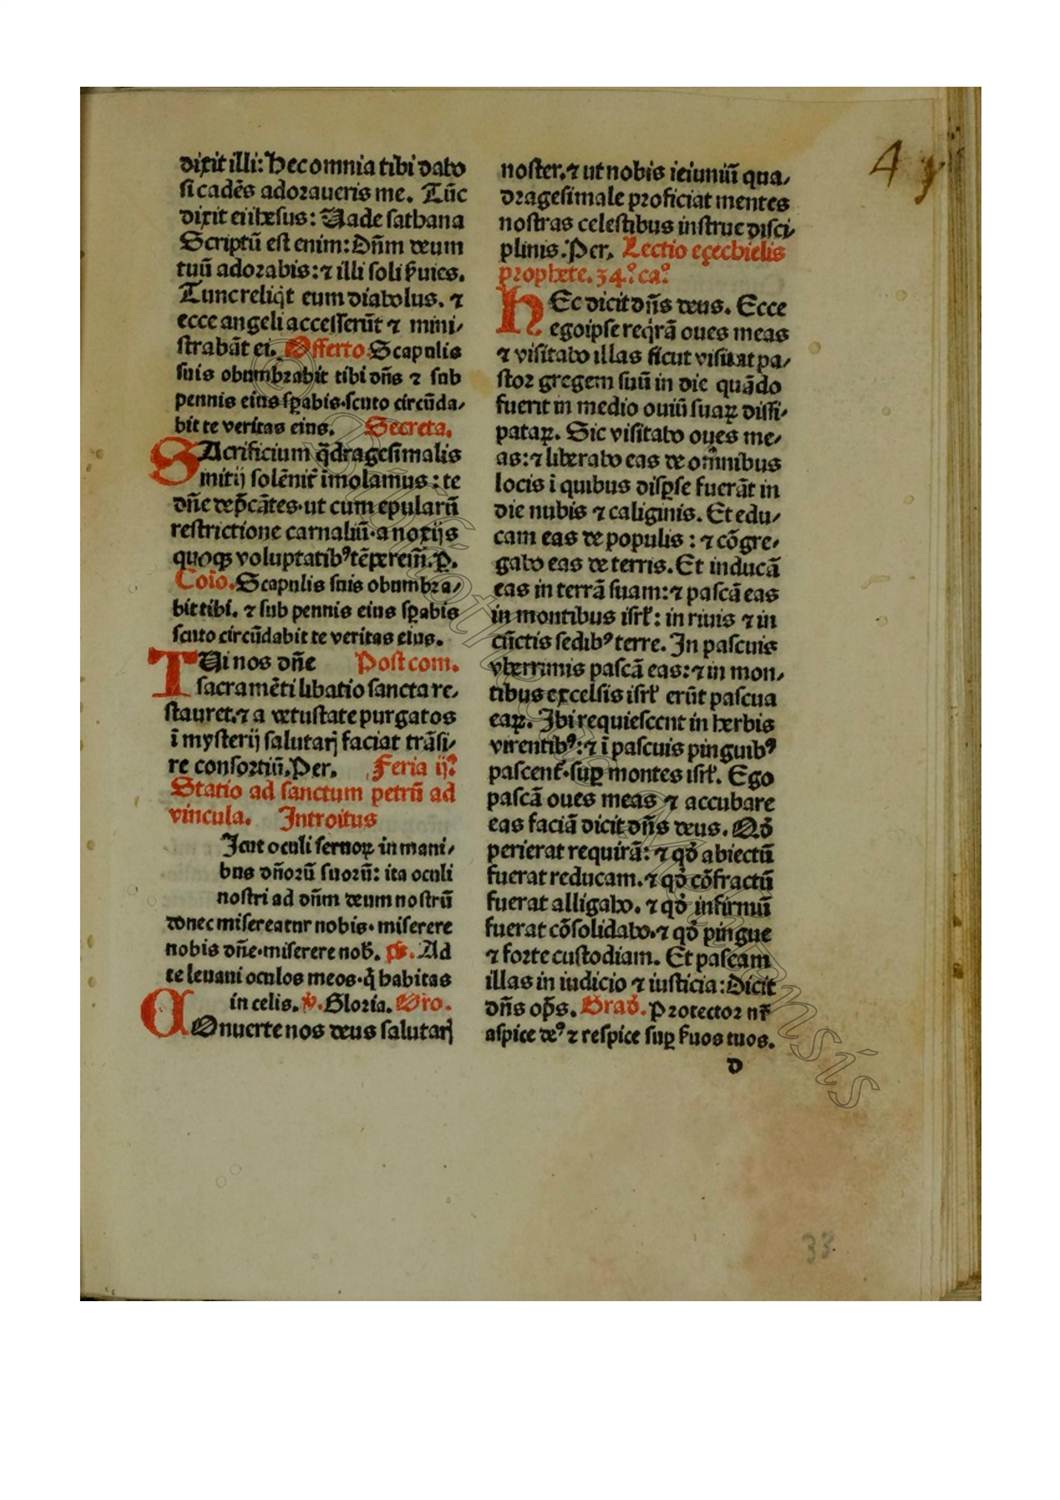 dixit illi: Hec omnia tibi dabo
si cadẽs adoraueris me. Tũc
dixit ei ihesus: Uade sathana
Scriptũ est enim: Dñm deum
tuũ adorabis: ⁊ illi soli ẜuies.
Tunc reliq̃t eum diabolus. ⁊
ecce angeli accesserũt ⁊ mini/
strabãt ei. Offerto. Scapulis
suis obumbrabit tibi dñs ⁊ sub
pennis eius sꝑabis. scuto circũda/
bit te veritas eius. Secreta.
SAcrificium q̃dragesimalis
initij solẽniṫ ĩmolamus: te
dñe dep̃cãtes. ut cum epularũ
restrictione carnaliũ. a noxijs
quoqꝫ voluptatibꝰ tẽperem̃. P.
Coĩo. Scapulis suis obumbra/
bit tibi. ⁊ sub pennis eius sꝑabis
scuto circũdabit te veritas eius.
TUi nos dñe Postcom.
sacramẽti libatio sancta re/
stauret. ⁊ a vetustate purgatos
ĩ mysterij salutarꝭ faciat trãsi/
re consortiũ. Per. Feria ij.ª
Statio ad sanctum petrũ ad
vincula. Introitus
Icut oculi seruoꝝ in mani/
bus dñorũ suorũ: ita oculi
nostri ad dñm deum nostrũ
donec misereatur nobis. miserere
nobis dñe. miserere nob̃. ps̃. Ad
te leuaui oculos meos. q̃ habitas
in celis. ℣. Gloria. Oro.
COnuerte nos deus salutarꝭ
noster. ⁊ ut nobis ieiuniũ qua/
dragesimale proficiat mentes
nostras celestibus instrue disci/
plinis. Per. Lectio ezechielis
prophete. 34.º ca.º
HEc dicit dñs deus. Ecce
ego ipse req̃rã oues meas
⁊ visitabo illas sicut visitat pa/
stor gregem suũ in die quãdo
fuerit in medio ouiũ suaꝝ dissi/
pataꝝ. Sic visitabo oues me/
as: ⁊ liberabo eas de omnibus
locis ĩ quibus disꝑse fuerãt in
die nubis ⁊ caliginis. Et edu/
cam eas de populis: ⁊ cõgre/
gabo eas de terris. Et inducã
eas in terrã suam: ⁊ pascã eas
in montibus isrł: in riuis ⁊ in
cũctis sedibꝰ terre. In pascuis
vberrimis pascã eas: ⁊ in mon/
tibus excelsis isrł erũt pascua
eaꝝ. Ibi requiescent in herbis
virentibꝰ: ⁊ ĩ pascuis pinguibꝰ
pascenṫ. suꝑ montes isrł. Ego
pascã oues meas ⁊ accubare
eas faciã dicit dñs deus. Qđ
perierat requirã: ⁊ qđ abiectũ
fuerat reducam. ⁊ qđ cõfractũ
fuerat alligabo. ⁊ qđ infirmũ
fuerat cõsolidabo. ⁊ qđ pingue
⁊ forte custodiam. Et pascam
illas in iudicio ⁊ iusticia: Dicit
dñs op̃s. Građ. Protector nr̃
aspice deꝰ ⁊ respice suꝑ ẜuos tuos.
d
33